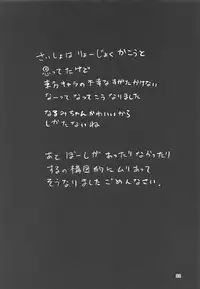 さいしょは りょーじょく かこうと
思ってたけど
まおちゃうの不幸なすがたかけない
なーって なって こう なりました
なおみちゃんかわいいから
しかたないね
あと ぼーしが あったり なかったり
するの 構図的に ムリ あって
そうなりました ごめんなさい.